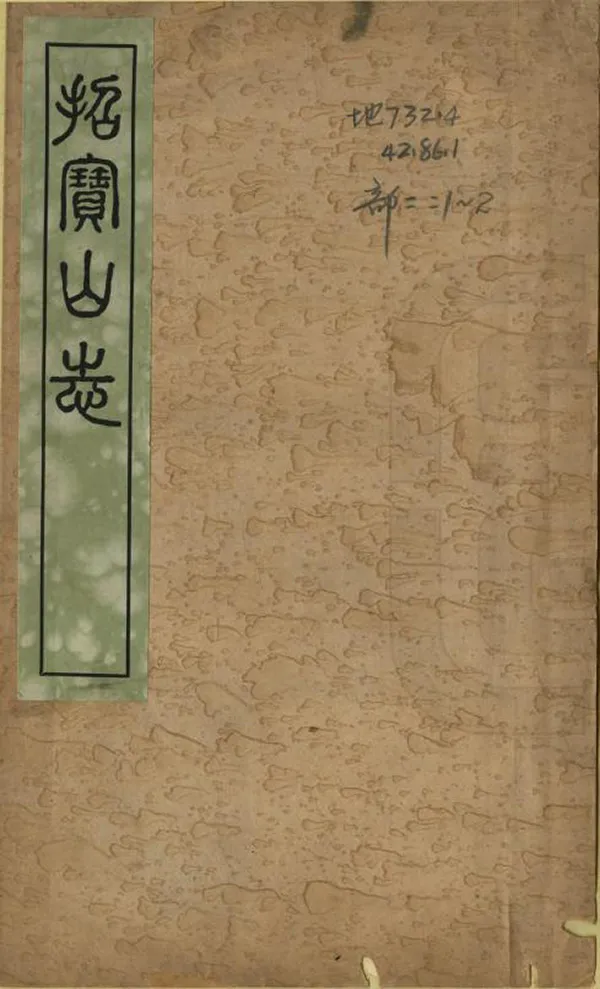 招寶山志
地732.4
42.86.1
部二:1~2